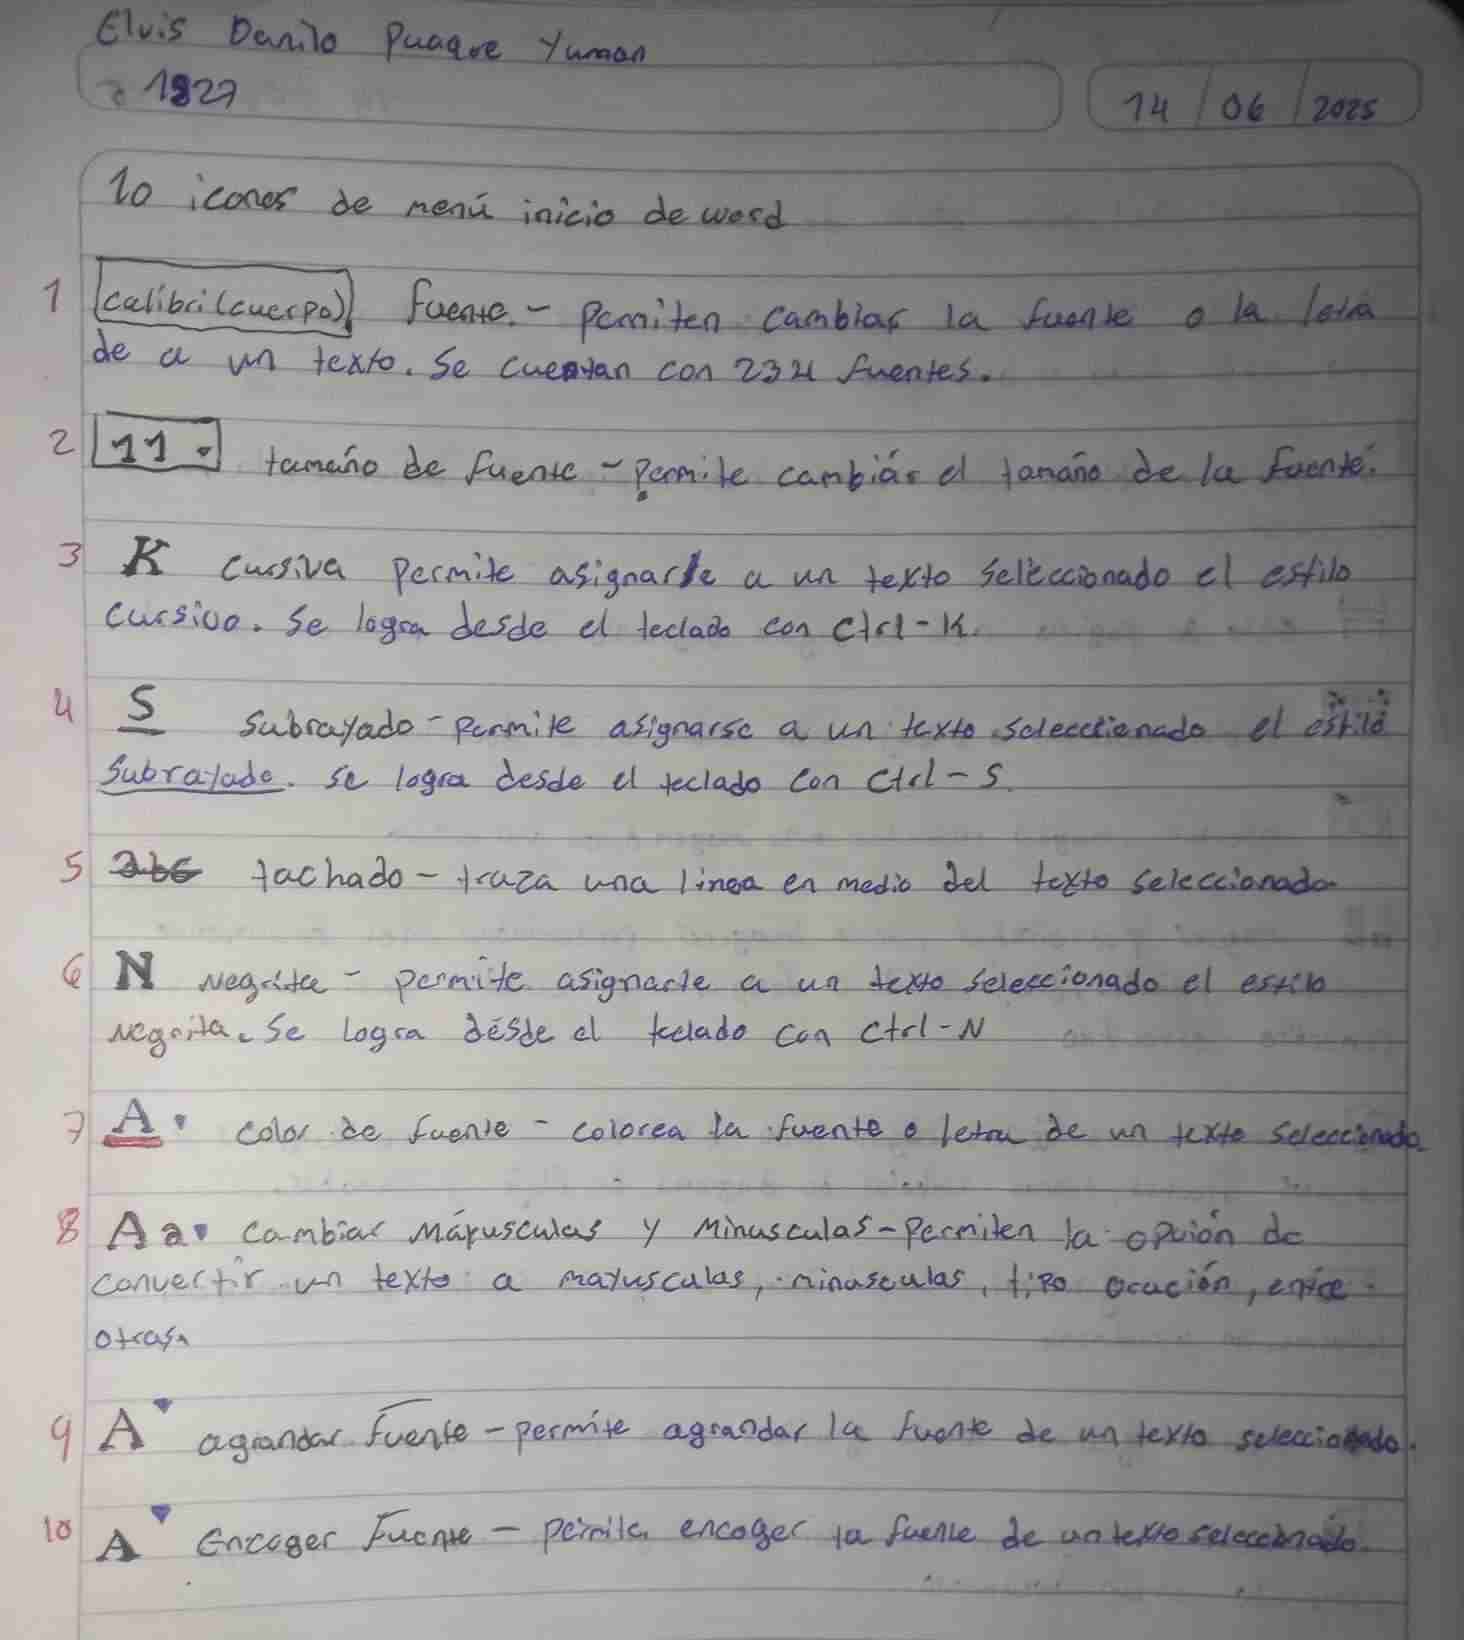 Elvis Danilo Puaque Yuman
1827
14/06/2025
10 iconos de menú inicio de word
1 calibri(cuerpo) Fuente.- Permiten cambiar la fuente o la letra
de a un texto. Se cuentan con 234 fuentes.
2 11 tamaño de fuente - Permite cambiar el tamaño de la fuente.
3 K Cursiva Permite asignarle a un texto seleccionado el estilo
cursivo. Se logra desde el teclado con Ctrl-K.
4 S Subrayado - Permite asignarse a un texto selecctionado el estilo
Subrayado. se logra desde el teclado con Ctrl-S.
5 abc tachado - traza una linea en medio del texto seleccionado
6 N Negrita - permite asignarle a un texto seleccionado el estilo
Negrita. Se logra desde el teclado con Ctrl-N
7 A color de fuente - colorea la fuente o letra de un texto seleccionado
8 Aa cambiar Mayusculas y Minusculas - Permiten la opción de
convertir un texto a mayusculas, minusculas, tipo oración, entre
otras.
9 A agrandar Fuente - permite agrandar la fuente de un texto seleccionado.
10 A Encoger Fuente - permite encoger la fuente de un texto seleccionado.